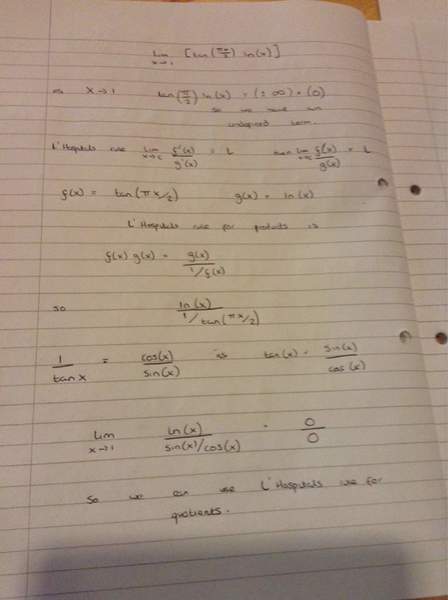 lim x→1 [tan(πx/2) ln(x)]
as x→1 tan(π/2) ln(x) = (±∞) * (0)
so we have an
undefined term.
L'Hospitals rule lim x→c f'(x)/g'(x) = L then lim x→c f(x)/g(x) = L
f(x) = tan(πx/2) g(x) = ln(x)
L'Hospitals rule for products is
f(x) g(x) = g(x)/1/f(x)
so ln(x)/1/tan(πx/2)
1/tanx = cos(x)/sin(x) as tan(x) = sin(x)/cos(x)
lim x→1 ln(x)/sin(x)/cos(x) = 0/0
So we can use L'Hospitals rule for
quotients.